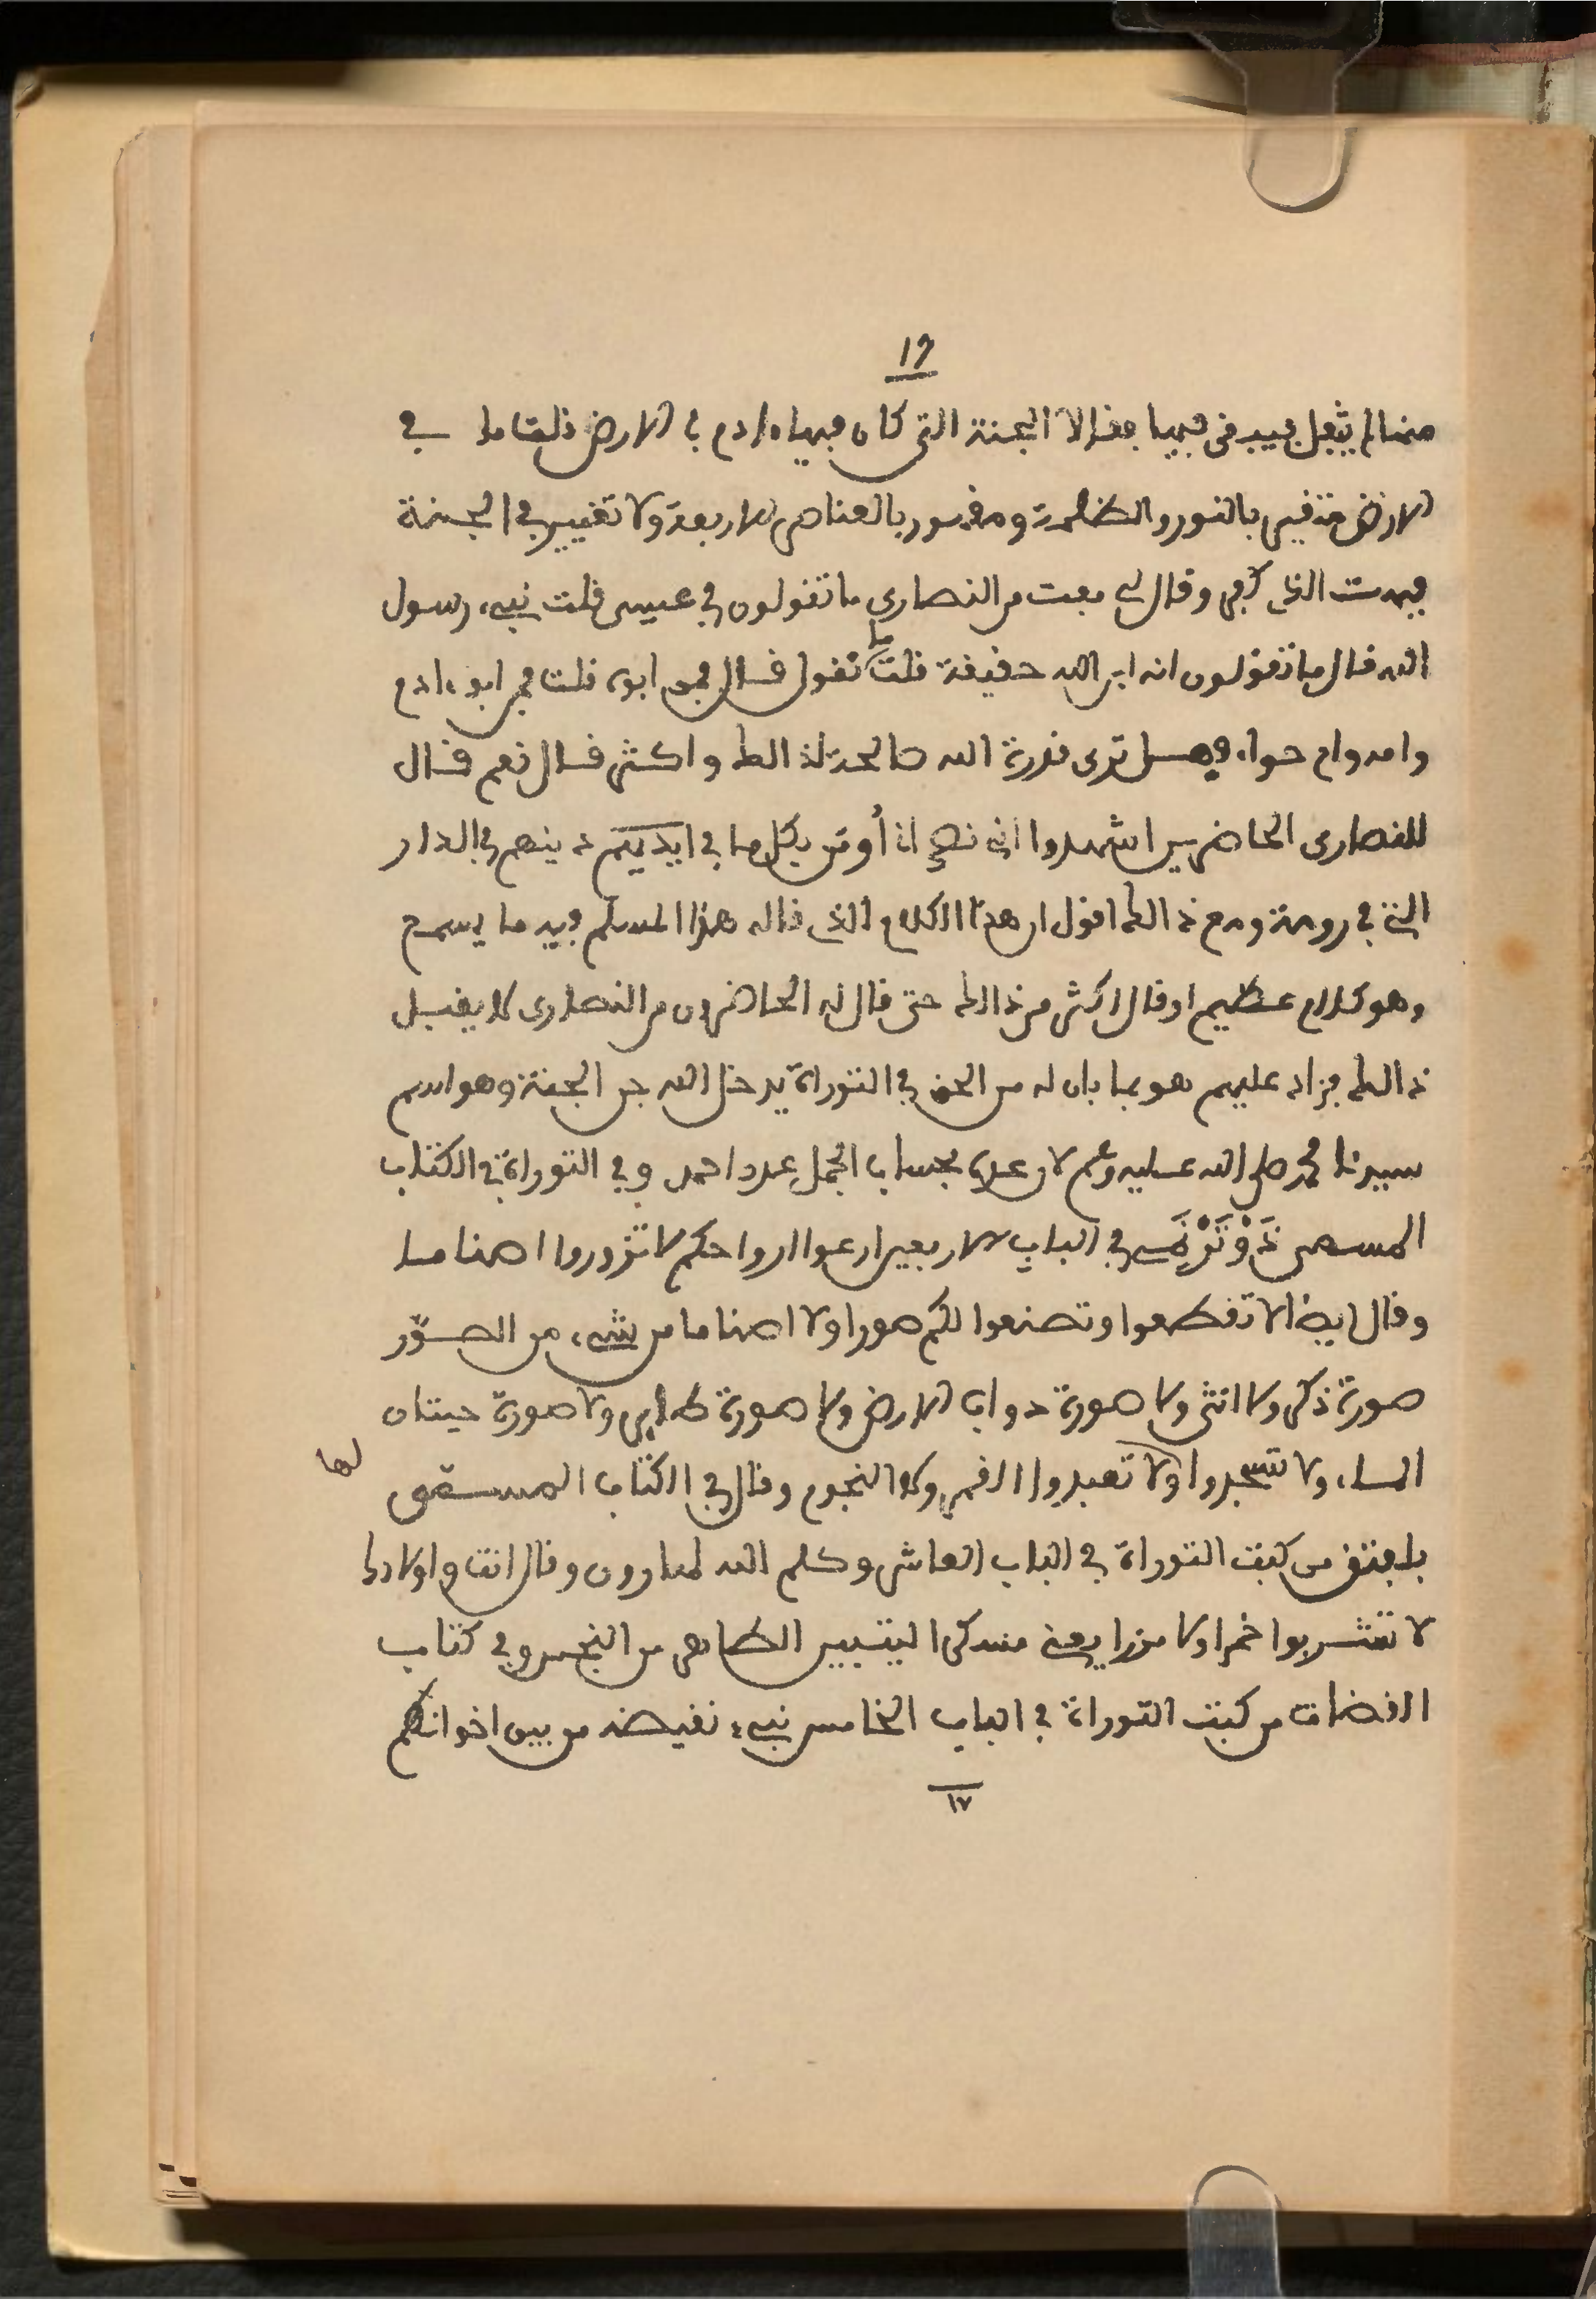 19
منا لم يثفل فيبقى فيها فقال الجنة التي كان فيها ءادم في الارض قلت ما في
الارض متغير بالنور والظلمة ومفسود بالعناصر الاربعة ولا تغيير في الجنة
فبهت الذي كفر وقال لي بعث من النصارى ما تقولون في عيسى قلت نبيء رسول
الله قال ما تقولون انه ابن الله حقيقة قلت ما تقول قال فمن ابوه قلت فمن ابو ءادم
وامه وام حواء وهل ترى قدرة الله صالحة لذالك واكثر قال نعم قال
للنصارى الحاضرين اشهدوا اني نصراني أومن بكل ما في ايديكم دينهم في الدار
التي في رومة ومع ذالك اقول ان هذا الكلام الذي قاله هذا المسلم فيه ما يسمح
وهو كلام عظيم او قال اكثر من ذالك حتى قال له الحاضرون من النصارى لا يقبل
ذالك فزاد عليهم هو بما بان له من الحق في التوراة يدخل الله جن الجنة وهو اسم
سيدنا محمد صلى الله عليه وسلم لان عدده بحساب الجمل عدد احمد وفي التوراة في الكتاب
المسمى ذَوْتَرْنُمَي في الباب الاربعين ارعوا ارواحكم لا تزوروا اصناما
وقال ايضا لا تقطعوا وتصنعوا لكم صورا ولا اصناما من شيء من الصور
صورة ذكر ولا انثى ولا صورة دواب الارض ولا صورة طاير ولا صورة حيتان
الماء ولا تسجدوا لها ولا تعبدوا القمر ولا النجوم وقال في الكتاب المسمى
بلبنتق من كتب التوراة في الباب العاشر وكلم الله لهارون وقال انت واولادك
لا تشربوا خمرا ولا مزرا يعني مسكرا ليتبين الطاهر من النجس وفي كتاب
القضات من كتب التوراة في الباب الخامس نبيء نقيضه من بين اخوانكم
١٧